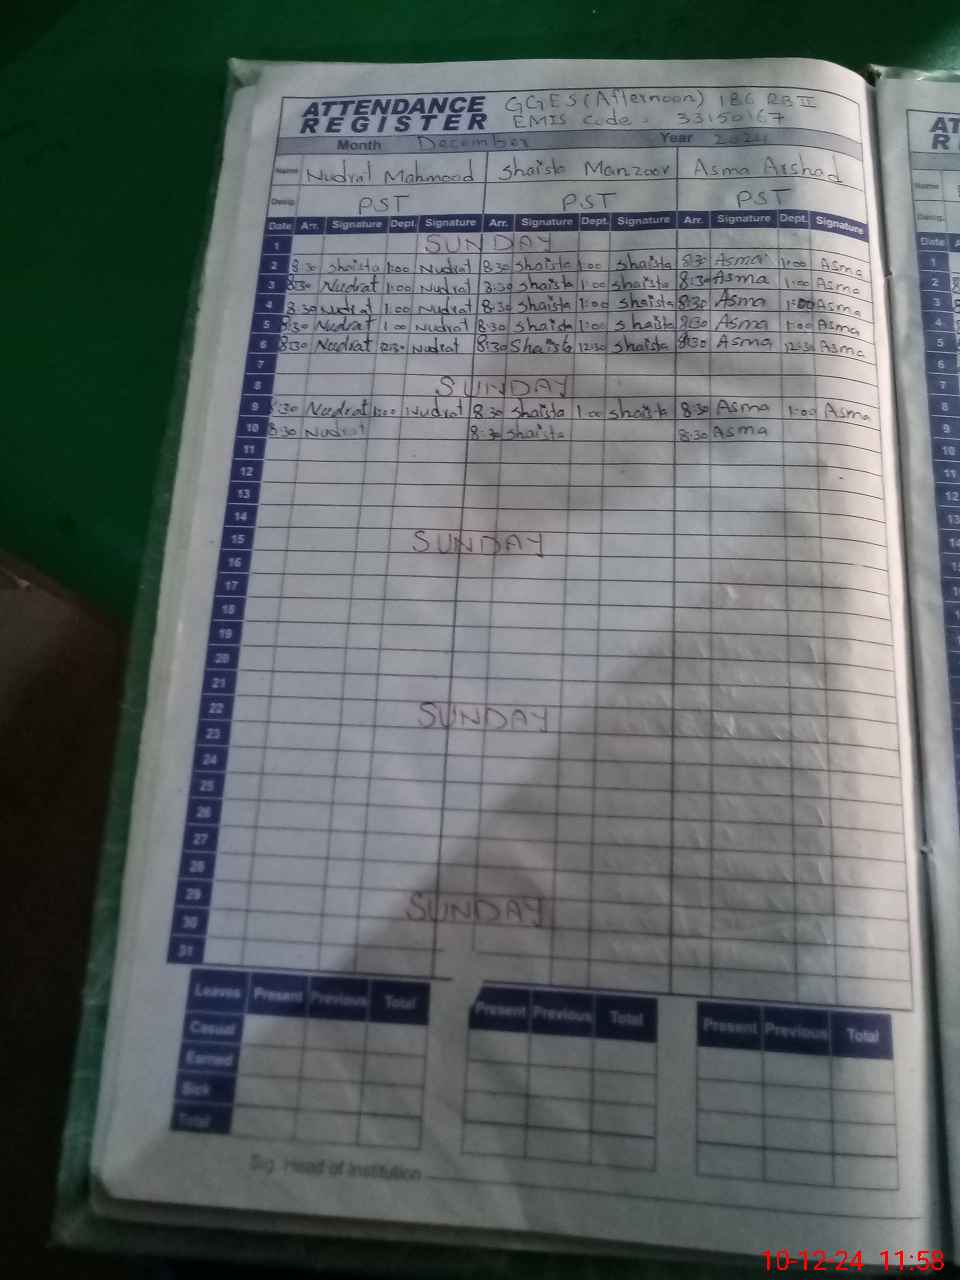 ATTENDANCE REGISTER GGES (Afternoon) 186 RB II
EMIS Code. 33150167
Month December Year 2024
Name Nudrat Mahmood Shaista Manzoor Asma Arshad
Desig. PST PST PST
Date Arr. Signature Dept. Signature Arr. Signature Dept. Signature Arr. Signature Dept. Signature
1 SUNDAY
2 8:30 Shaista 1:00 Nudrat 8:30 Shaista 1:00 Shaista 8:30 Asma 1:00 Asma
3 8:30 Nudrat 1:00 Nudrat 8:30 Shaista 1:00 Shaista 8:30 Asma 1:00 Asma
4 8:30 Nudrat 1:00 Nudrat 8:30 Shaista 1:00 Shaista 8:30 Asma 1:00 Asma
5 8:30 Nudrat 1:00 Nudrat 8:30 Shaista 1:00 Shaista 8:30 Asma 1:00 Asma
6 8:30 Nudrat 12:30 Nudrat 8:30 Shaista 12:30 Shaista 8:30 Asma 12:30 Asma
7
8 SUNDAY
9 8:30 Nudrat 1:00 Nudrat 8:30 Shaista 1:00 Shaista 8:30 Asma 1:00 Asma
10 8:30 Nudrat 8:30 Shaista 8:30 Asma
11
12
13
14
15 SUNDAY
16
17
18
19
20
21
22 SUNDAY
23
24
25
26
27
28
29 SUNDAY
30
31
Leaves Present Previous Total Present Previous Total Present Previous Total
Casual
Earned
Sick
Total
Sig. Head of Institution
AT
R
Name
Desig.
Date A
1
2
3
4
5
6
7
8
9
10
11
12
13
14
10-12-24 11:58